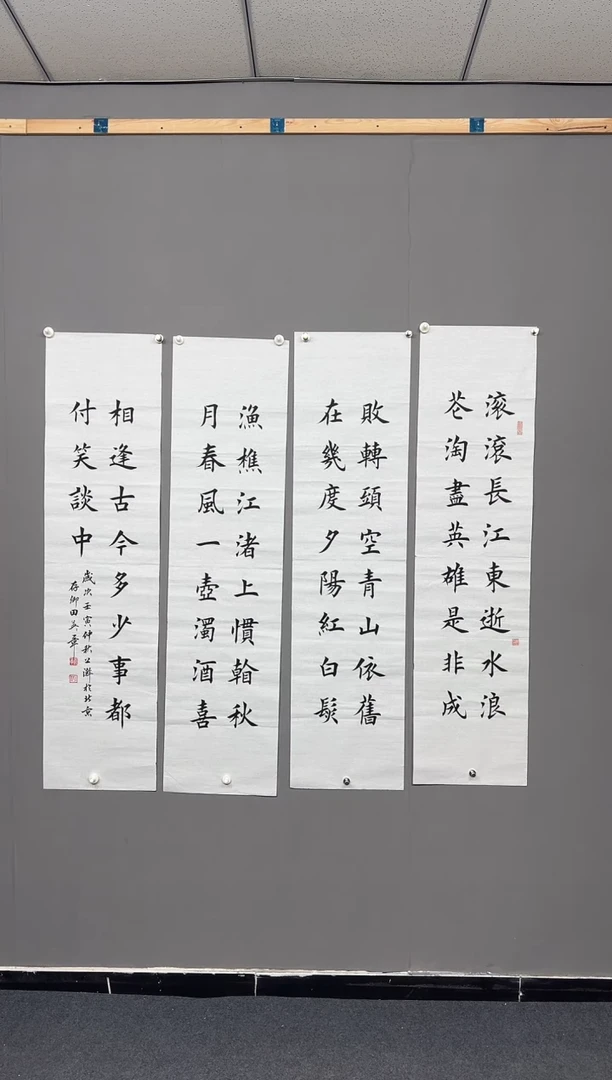 滚滾長江東逝水浪
花淘盡英雄是非成
敗轉頭空青山依舊
在幾度夕陽紅白髮
漁樵江渚上慣看秋
月春風一壺濁酒喜
相逢古今多少事都
付笑談中
歲次壬寅仲秋上澣於北京
存卿田英章